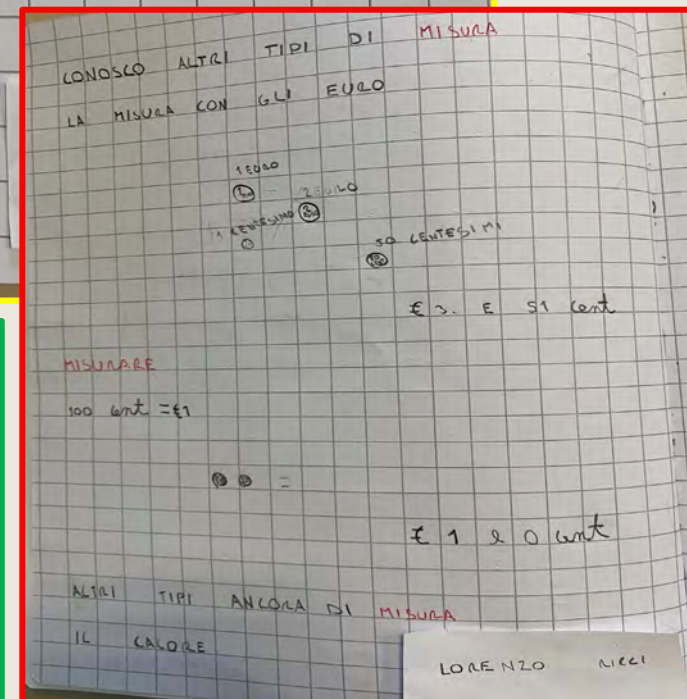 CONOSCO ALTRI TIPI DI MISURA
LA MISURA CON GLI EURO
1 EURO
2 EURO
1 CENTESIMO
50 CENTESIMI
€ 3. E 51 cent
MISURARE
100 cent = €1
=
€ 1 e 0 cent
ALTRI TIPI ANCORA DI MISURA
IL CALORE
LORENZO RICCI